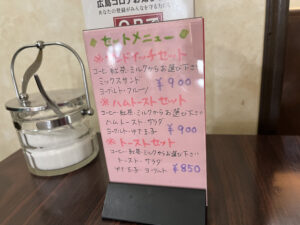 広島コロナお知らせ
あなたの登録がみんなを守る力に
セットメニュー
※サンドイッチセット
コーヒー 紅茶 ミルクからお選び下さい
ミックスサンド
ヨーグルト・フルーツ ¥900
※ハムトーストセット
コーヒー 紅茶 ミルクからお選び下さい
ハムトースト・サラダ
ヨーグルト・ゆで玉子 ¥900
※トーストセット
コーヒー 紅茶 ミルクからお選び下さい
トースト・サラダ
ゆで玉子 ヨーグルト ¥850